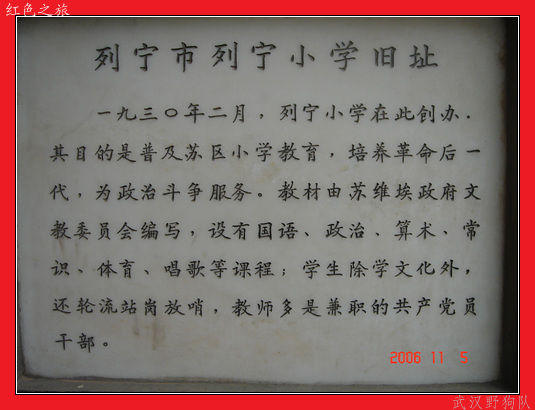 红色之旅
列宁市列宁小学旧址
一九三〇年二月，列宁小学在此创办.
其目的是普及苏区小学教育，培养革命后一
代，为政治斗争服务。教材由苏维埃政府文
教委员会编写，设有国语、政治、算术、常
识、体育、唱歌等课程；学生除学文化外，
还轮流站岗放哨，教师多是兼职的共产党员
干部。
2006 11 5
武汉野狗队